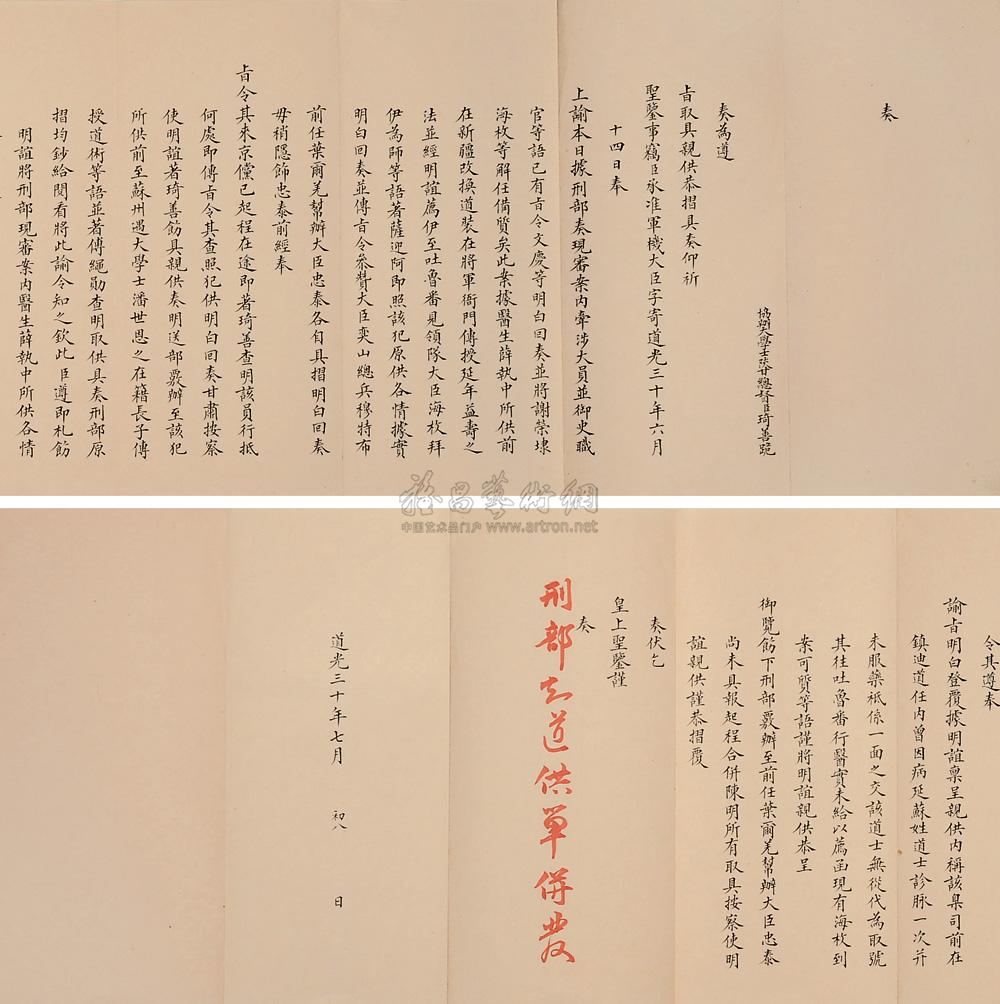 奏
協辦大學士陝甘總督臣琦善跪
奏為遵
旨取具親供恭摺具奏仰祈
聖鑒事竊臣承准軍機大臣字寄道光三十年六月
十四日奉
上諭本日據刑部奏現審案內牽涉大員並御史職
官等語已有旨令文慶等明白回奏並將謝榮埭
海枚等解任備質矣此案據醫生薛執中所供前
在新疆改換道裝在將軍衙門傳授延年益壽之
法並經明誼薦伊至吐魯番見領隊大臣海枚拜
伊為師等語著薩迎阿即照該犯原供各情據實
明白回奏並傳旨令叅贊大臣奕山總兵穆特布
前任葉爾羌幫辦大臣忠泰各自具摺明白回奏
毋稍隱飾忠泰前經奉
旨令其來京儻已起程在途即著琦善查明該員行抵
何處即傳旨令其查照犯供明白回奏甘肅按察
使明誼著琦善飭具親供奏明送部覈辦至該犯
所供前至蘇州遇大學士潘世恩之在籍長子傳
授道術等語並著傅繩勛查明取供具奏刑部原
摺均鈔給閱看將此諭令知之欽此臣遵即札飭
明誼將刑部現審案內醫生薛執中所供各情
令其遵奉
諭旨明白登覆據明誼稟呈親供內稱該臬司前在
鎮迪道任內曾因病延蘇姓道士診脉一次并
未服藥祇係一面之交該道士無從代為取號
其往吐魯番行醫實未給以薦函現有海枚到
案可質等語謹將明誼親供恭呈
御覽飭下刑部覈辦至前任葉爾羌幫辦大臣忠泰
尚未具報起程合併陳明所有取具按察使明
誼親供謹恭摺覆
奏伏乞
皇上聖鑒謹
奏
刑部知道供單併發
道光三十年七月 初八 日
雅昌藝術網
中国艺术品门户 www.artron.net